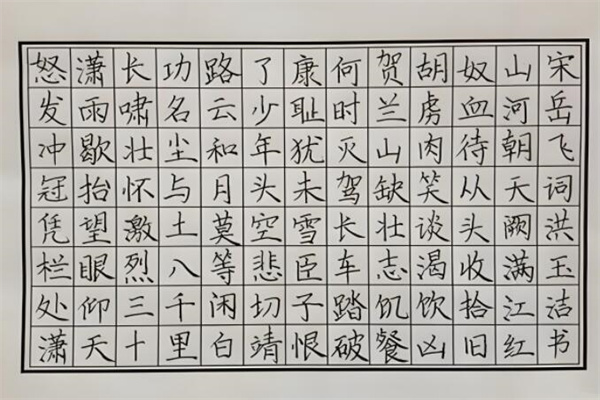 怒发冲冠凭栏处潇
潇雨歇抬望眼仰天
长啸壮怀激烈三十
功名尘与土八千里
路云和月莫等闲白
了少年头空悲切靖
康耻犹未雪臣子恨
何时灭驾长车踏破
贺兰山缺壮志饥餐
胡虏肉笑谈渴饮凶
奴血待从头收拾旧
山河朝天阙满江红
宋岳飞词洪玉洁书